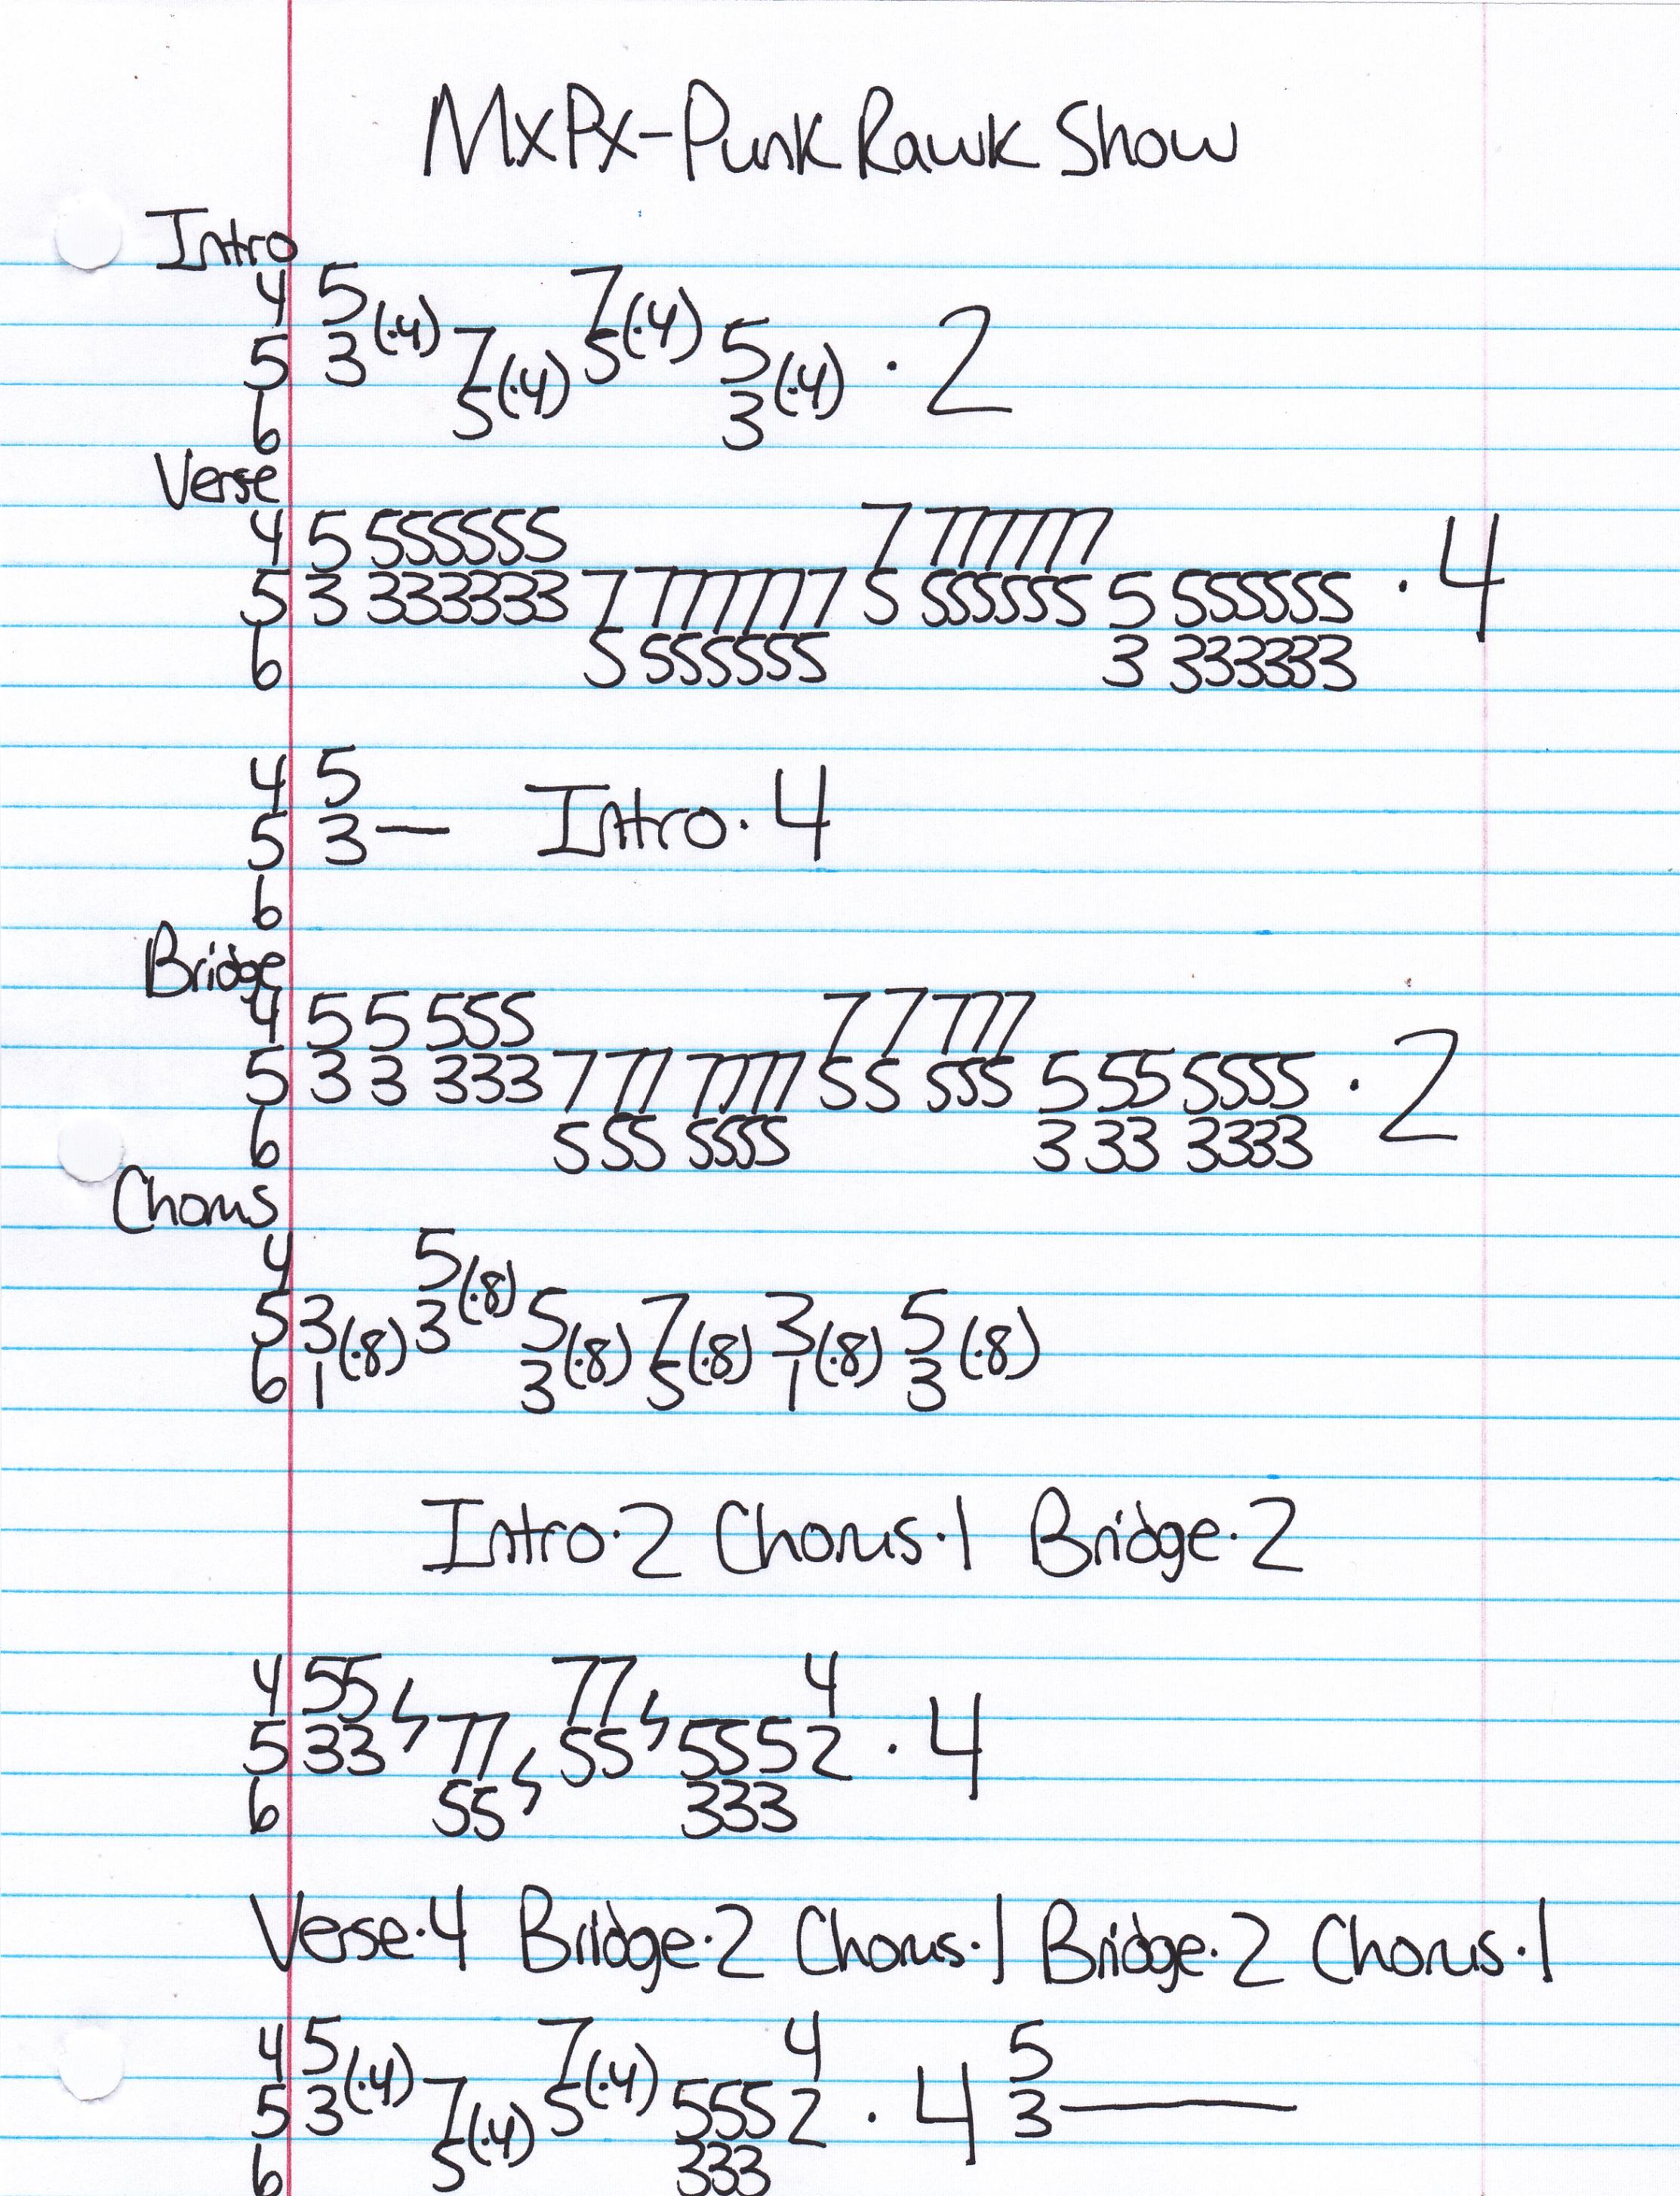 MxPx-Punk Rawk Show
Intro
4 5 (·4) 7 (·4)
5 3 7 (·4) 5 5 (·4) · 2
6 5 3
Verse
4 5 555555 7 777777
5 3 333333 7 777777 5 555555 5 555555 · 4
6 5 555555 3 333333
4 5
5 3— Intro·4
6
Bridge
4 5 5 555 7 7 777
5 3 3 333 7 77 7777 5 5 555 5 55 5555 · 2
6 5 55 5555 3 33 3333
Chorus
4 5 (·8)
5 3 (·8) 3 5 (·8) 7 (·8) 3 (·8) 5 (·8)
6 1 3 5 1 3
Intro·2 Chorus·1 Bridge·2
4 55 77 4
5 33 77 55 5552 · 4
6 55 333
Verse·4 Bridge·2 Chorus·1 Bridge·2 Chorus·1
4 5 (·4) 7 (·4) 4 5
5 3 7 (·4) 5 5552 · 4 3—
6 5 333